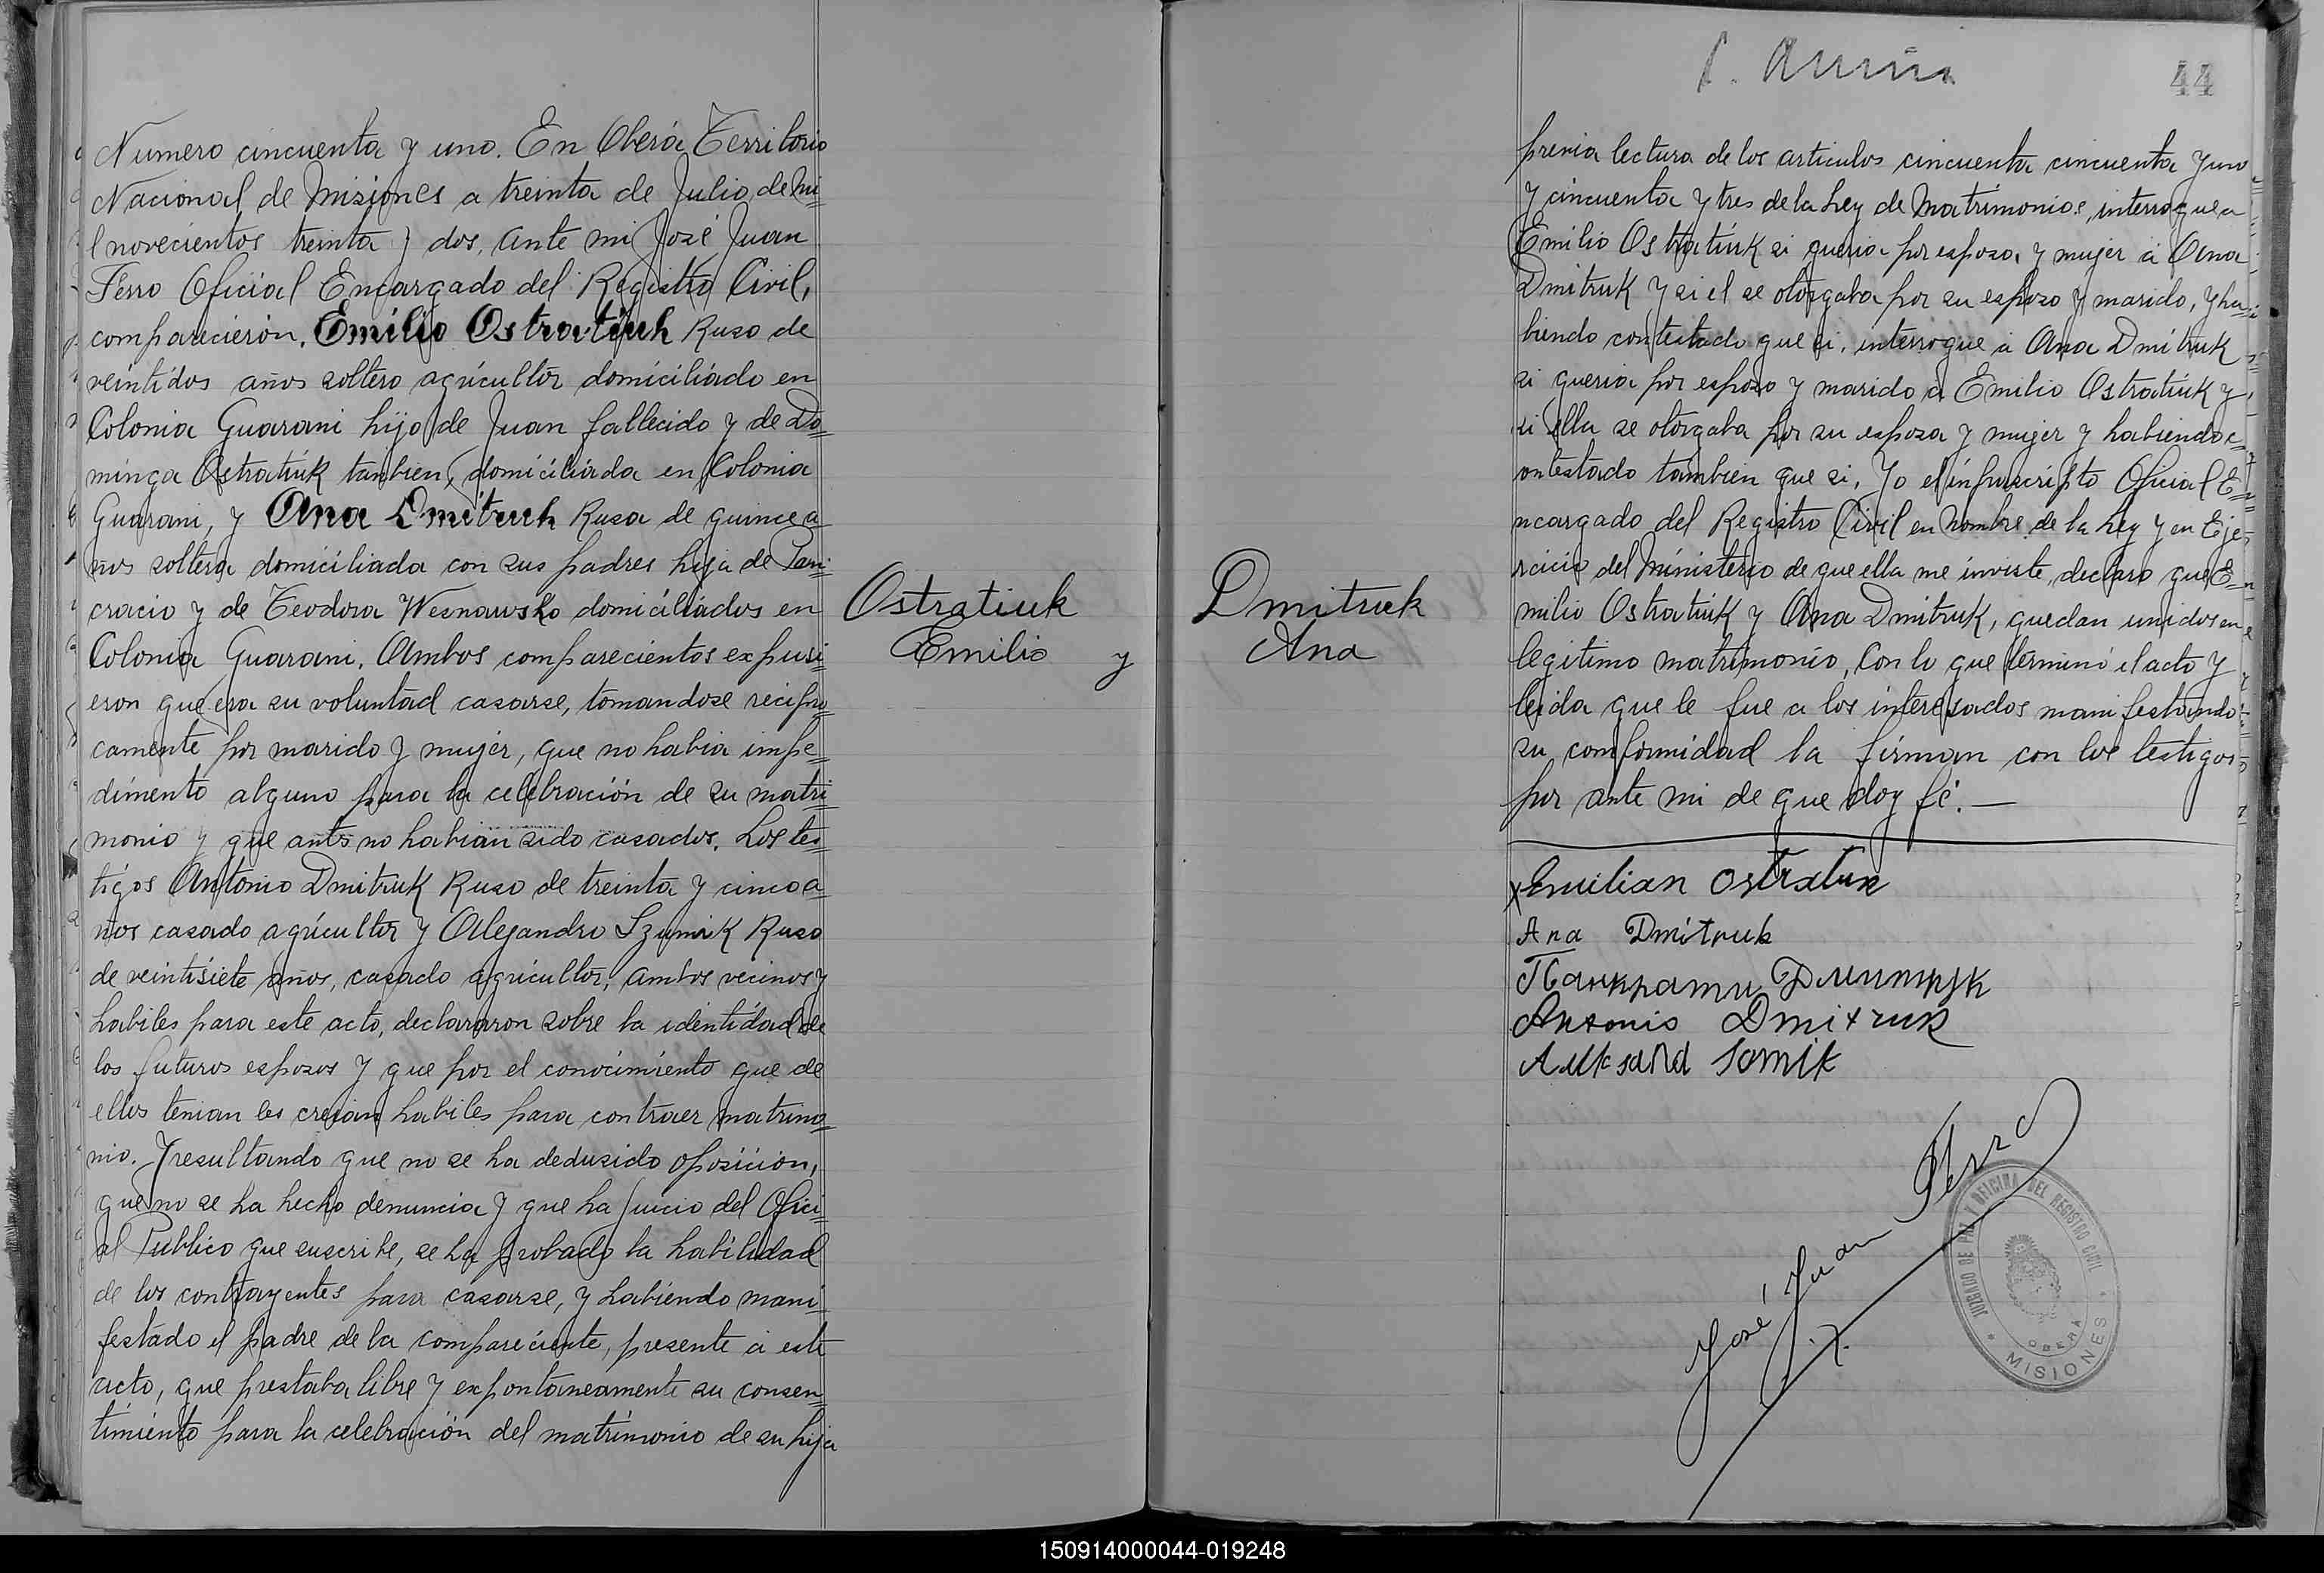 Numero cincuenta y uno. En Oberá Territorio
Nacional de Misiones a treinta de Julio de mi=
l novecientos treinta y dos, ante mi José Juan
Ferro Oficiál Encargado del Registro Civil,
comparecierón, Emilio Ostratiuk Ruso de
veintidos años soltero agricultór domiciliádo en
Colonia Guarani hijo de Juan fallecido y de Do=
minga Ostratiuk tanbien, domiciliáda en Colonia
Guarani, y Ana Dmitruk Rusa de quince a
ños soltera domiciliada con sus padres hija de Pan=
cracio y de Teodora Wesnawsko domiciliádos en
Colonia Guarani. Ambos comparecientos expusi=
eron que era su voluntád casarse, tomandose recipro=
camente por marido y mujer, que no habia impe=
dimento alguno para la celebración de su matri=
monio y que ants no habian sido casados. Los tes=
tigos Antonio Dmitruk Ruso de treinta y cinco a=
ños casado agricultór y Alejandro Szumik Ruso
de veintisiete años, casado agricultór, ambos vecinos y
habiles para este acto, declararon sobre la identidad de
los futuros esposos y que por el conocimiento que de
ellos tenian les creian habiles para contraer matrimo=
nio. Y resultando que no se ha dedusido oposición,
que no se ha hecho denuncia y que ha juicio del Ofici=
al Publico que suscribe, se ha probado la habilidad
de los contrayentes para casarse, y habiendo mani=
festado el padre de la compareciente, presente á este
acto, que prestaba libre y expontaneamente su consen=
timiento para la celebración del matrimonio de su hija
Ostratiuk
Emilio y
Dmitruk
Ana
44
previa lectura de los articulos cincuenta cincuenta y uno
y cincuenta y tres de la Ley de Matrimonios, interrogue a
Emilio Ostratiuk si queria por esposa y mujer á Ana
Dmitruk y si el se otorgaba por su esposo y marido, y ha=
biendo contestado que si, interrogue á Ana Dmitruk
si queria por esposo y marido á Emilio Ostratiuk y
si ella se otorgaba por su esposa y mujer y habiendo c=
ontestado tambien que si, Yo el infrascripto Oficial E=
ncargado del Registro Civil en nombre de la Ley y en Eje=
rcicio del Ministerio de que ella me inviste, declaro que E=
milio Ostratiuk y Ana Dmitruk, quedan unidos en
legitimo matrimonio, Con lo que terminó el acto y
leida que le fue a los interesados manifestando
su comformidad la firman con los testigos
por ante mi de que doy fé.—
x Emilian Ostratiuk
Ana Dmitruk
Панкрати Дмитрук
Antonio Dmitruk
Aleksandr Somik
José Juan Ferro
JUZGADO DE PAZ Y OFICINA DEL REGISTRO CIVIL
OBERA
MISIONES
150914000044-019248